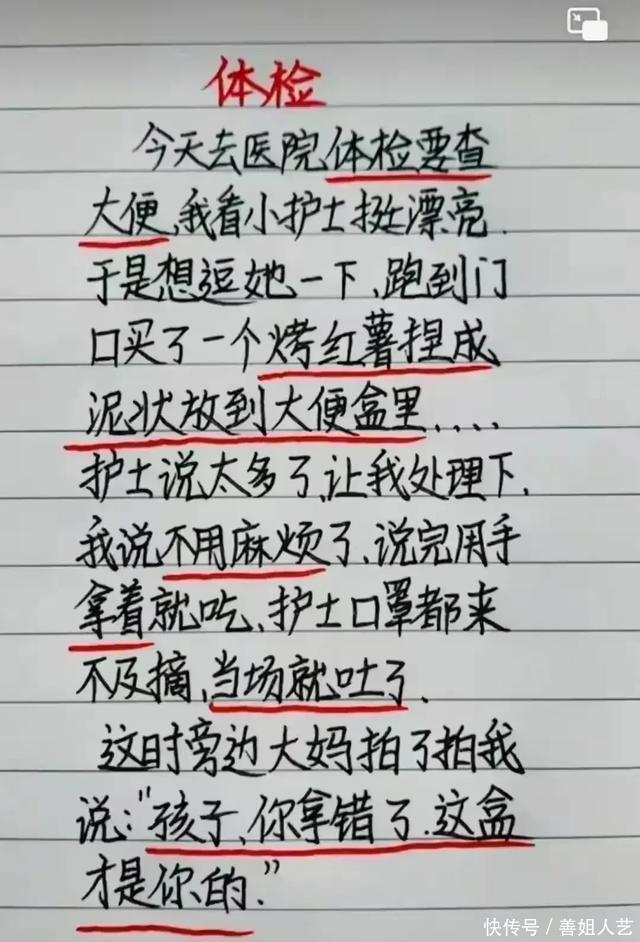 体检
今天去医院体检要查
大便,我看小护士挺漂亮.
于是想逗她一下、跑到门
口买了一个烤红薯捏成
泥状放到大便盒里....
护士说太多了,让我处理下.
我说不用麻烦了、说完用手
拿着就吃、护士口罩都来
不及摘,当场就吐了.
这时旁边大妈拍了拍我
说:"孩子、你拿错了.这盒
才是你的."
快传号/善姐人艺